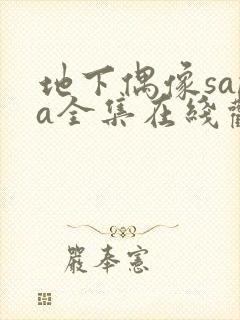 地下偶像sa
a全集在线
嚴奉憲